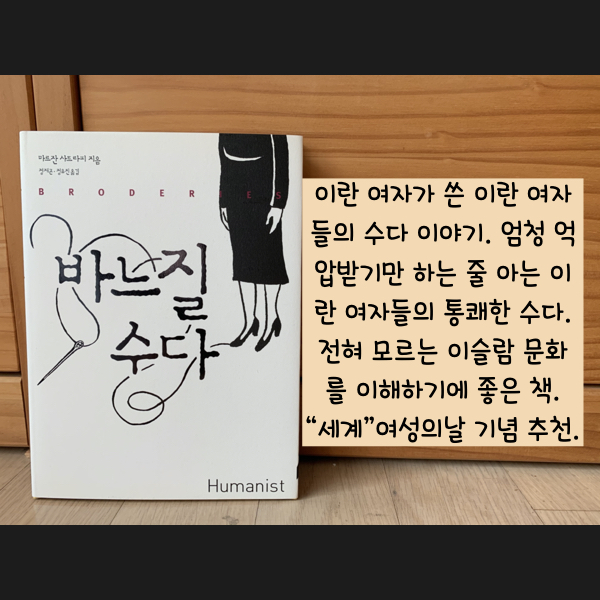 마르잔 사트라피 지음
정재곤·정유진 옮김
BRODERIES
바느질
수다
Humanist
이란 여자가 쓴 이란 여자
들의 수다 이야기. 엄청 억
압받기만 하는 줄 아는 이
란 여자들의 통쾌한 수다.
전혀 모르는 이슬람 문화
를 이해하기에 좋은 책.
“세계”여성의날 기념 추천.